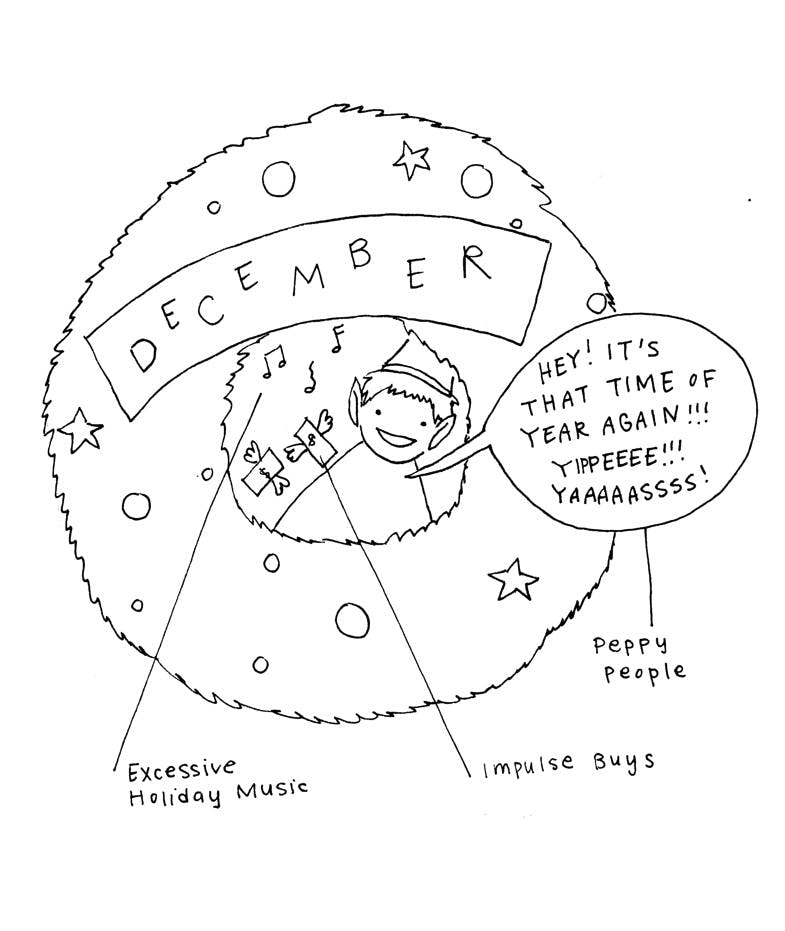 DECEMBER
HEY! IT'S
THAT TIME OF
YEAR AGAIN!!!
YIPPEEEE!!!
YAAAAASSSS!
Peppy
People
Excessive
Holiday Music
Impulse Buys
$
$